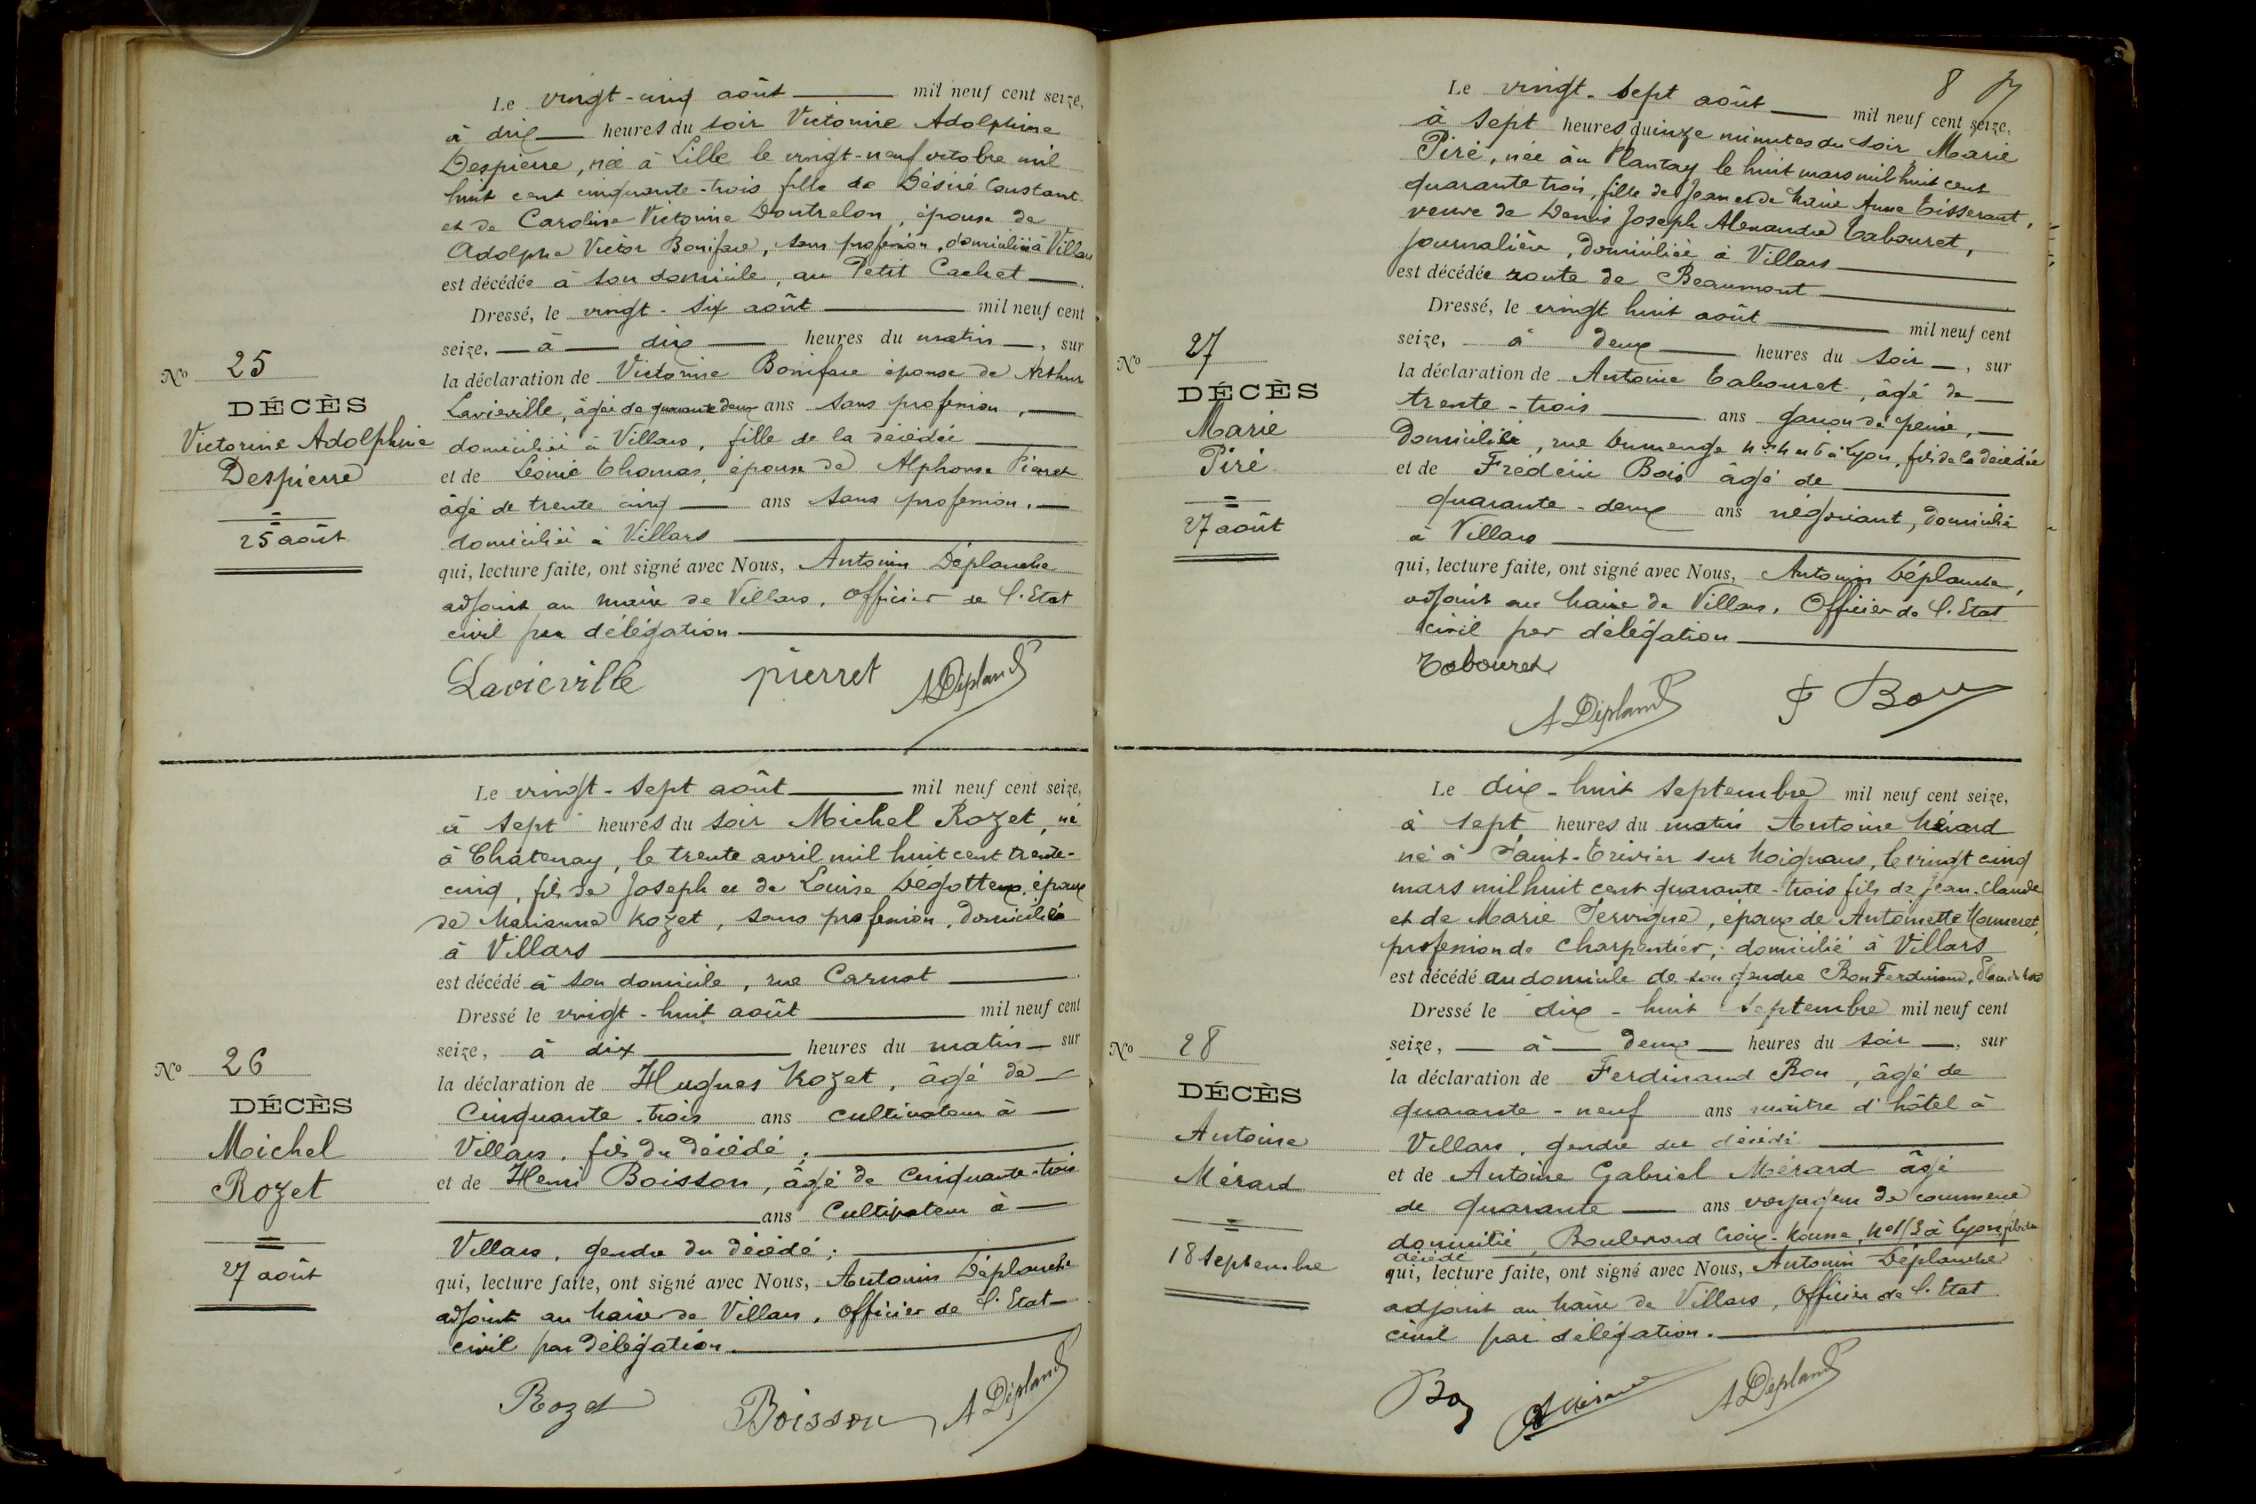 Le vingt-cinq août mil neuf cent seize,
à dix heures du soir Victorine Adolphine
Despierre, née à Lille le vingt-neuf octobre mil
huit cent cinquante-trois fille de Désiré Constant
et de Caroline Victorine Doutrelon, épouse de
Adolphe Victor Boniface, sans profession, domiciliée à Villars
est décédée à son domicile, au Petit Cachet
Dressé, le vingt-six août mil neuf cent
seize, à dix heures du matin, sur
No 25
la déclaration de Victorine Boniface épouse de Arthur
DÉCÈS
Lavieville, âgée de quarante deux ans sans profession,
Victorine Adolphine
domiciliée à Villars, fille de la décédée
Despierre
et de Léonie Thomas, épouse de Alphonse Pierret
âgé de trente cinq ans sans profession.
25 août
domiciliée à Villars
qui, lecture faite, ont signé avec Nous, Antonin Déplanche
adjoint au maire de Villars, Officier de l'Etat
civil par délégation
Lavieville pierret A Déplanche
Le vingt-sept août mil neuf cent seize,
à sept heures du soir Michel Rozet, né
à Châtenay, le trente avril mil huit cent trente-
cinq, fils de Joseph et de Louise Dégottex, époux
de Marianne Rozet, sans profession, domicilié
à Villars
est décédé à son domicile, rue Carnot
Dressé le vingt-huit août mil neuf cent
seize, à dix heures du matin sur
No 26
la déclaration de Hugues Rozet, âgé de
DÉCÈS
Cinquante-trois ans cultivateur à
Michel
Villars, fils du décédé,
Rozet
et de Henri Boisson, âgé de cinquante-trois
ans Cultivateur à
Villars, gendre du décédé;
27 août
qui, lecture faite, ont signé avec Nous, Antonin Déplanche
adjoint au maire de Villars, Officier de l'Etat
civil par délégation.
Rozet Boisson A Déplanche
8
Le vingt-sept août mil neuf cent seize,
à sept heures quinze minutes du soir, Marie
Piré, née au Plantay le huit mars mil huit cent
quarante trois, fille de Jean et de Marie Anne Tisserant,
veuve de Denis Joseph Alexandre Tabouret,
journalière, domiciliée à Villars
est décédée route de Beaumont
Dressé, le vingt huit août mil neuf cent
seize, à deux heures du soir, sur
No 27
la déclaration de Antoine Tabouret, âgé de
DÉCÈS
trente-trois ans garçon de peine,
Marie
domicilié, rue à Lyon, fils de la décédée
Piré
et de Frédéric Bois âgé de
quarante-deux ans négociant, domicilié
27 août
à Villars
qui, lecture faite, ont signé avec Nous, Antonin Déplanche,
adjoint au maire de Villars, Officier de l'Etat
civil par délégation
Tabouret
A Déplanche F Bois
Le dix-huit septembre mil neuf cent seize,
à sept heures du matin Antoine Mérard
né à Saint-Trivier sur Moignans, le vingt cinq
mars mil huit cent quarante-trois fils de Jean-Claude
et de Marie Servigne, époux de Antoinette Monneret,
profession de charpentier; domicilié à Villars
est décédé au domicile de son gendre Bon Ferdinand,
Dressé le dix-huit septembre mil neuf cent
seize, à deux heures du soir, sur
No 28
la déclaration de Ferdinand Bon, âgé de
DÉCÈS
quarante-neuf ans maître d'hôtel à
Antoine
Villars, gendre du décédé
Mérard
et de Antoine Gabriel Mérard âgé
de quarante ans voyageur de commerce
domicilié, Boulevard Croix-Rousse, No 113 à Lyon, fils du
18 septembre
décédé
qui, lecture faite, ont signé avec Nous, Antonin Déplanche
adjoint au maire de Villars, Officier de l'Etat
civil par délégation.
Bon A Mérard A Déplanche